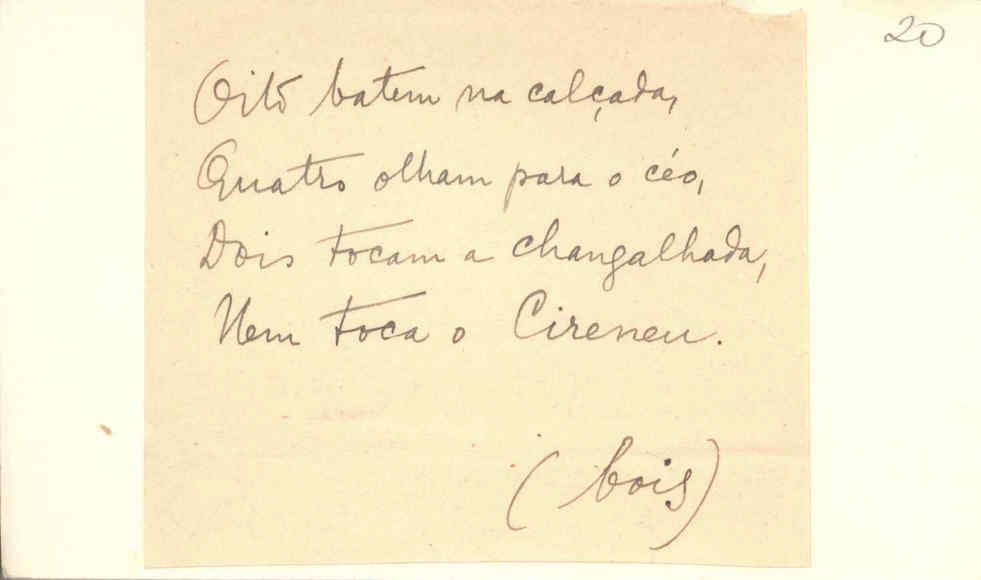 20
Oito batem na calçada,
Quatro olham para o céo,
Dois tocam a changalhada,
Nem toca o Cireneu.
(bois)